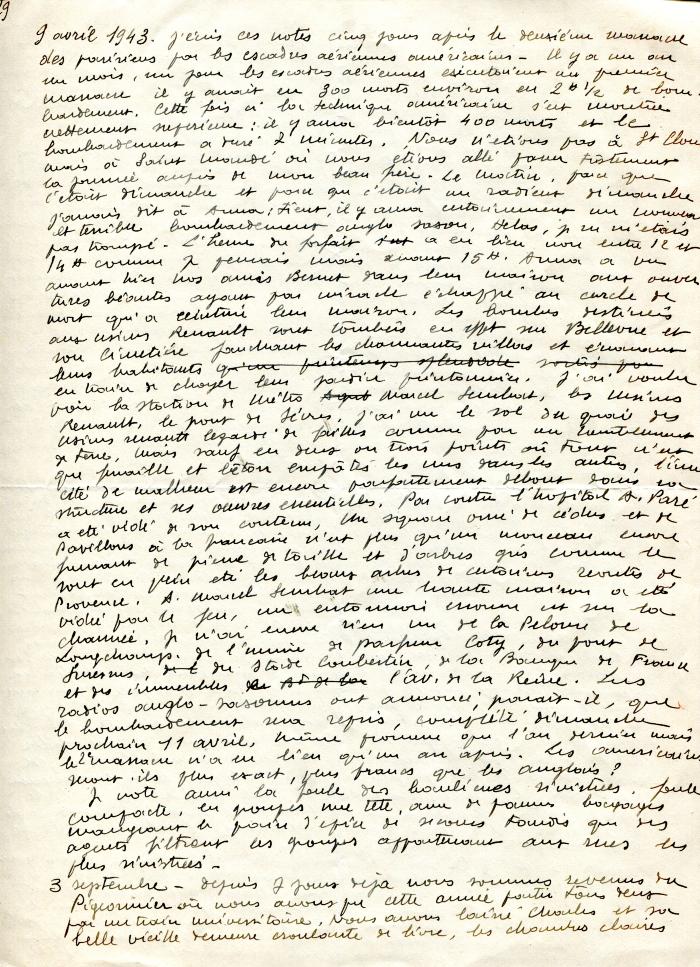 9 avril 1943. J'écris ces notes cinq jours après le deuxième massacre
des parisiens par les escadres aériennes américaines - Il y a un an
un mois, un jour les escadres aériennes exécutaient un premier
massacre il y avait eu 300 morts environ en 2 h 1/2 de bom-
bardement. Cette fois ci la technique américaine s'est montrée
nettement supérieure : il y aura bientôt 400 morts et le
bombardement a duré 7 minutes. Nous n'étions pas à St Clou
mais à Saint Mandé où nous étions allé passer tristement
la journée auprès de mon beau père. Le matin, parce que
c'était dimanche et parce que c'était un radieut dimanche
j'avais dit à Anna ; tient, il y aura certainement un nouveau
et terrible bombardement anglo saxon. Hélas, je ne m'étais
pas trompé. L'heure du forfait a eu lieu, non entre 12 et
14 H comme je pensais mais avant 15 H. Anna a vu
avant hier nos amis Besnet dans leur maison aux ouver
tures béantes ayant par miracle échappé au cercle de
mort qui a ceinturé leur maison. Les bombes destinées
aux usines Renault sont tombées en effet sur Bellevue et
son cimetière fauchant les charmantes villas et écrasant
leurs habitants qu'un printemps splendide sortis pour
en train de choyer leur jardin printannier. J'ai voulu
voir la station de Métro Marcel Sembat, les usines
Renault, le pont de Sèvres, j'ai vu le sol du quai des
usines renault lézardé de failles comme par un tremblement
de terre, mais sauf en deux ou trois points où tout n'est
que ferraille et béton empâtés les uns dans les autres, l'im
cité de malheur est encore parfaitement debout dans sa
structure et ses oeuvres essentielles. Par contre l'hôpital A. Paré
a été vidé de son contenu, Un square orné de cèdres et de
Pavillons à la française n'est plus qu'un monceau encore
fumant de pierre de taille et d'arbres gris comme le
sont en plein été les beaux arbres de certaines routes de
Provence. A. Marcel Sembat une haute maison a été
vidée par le feu, un entonnoir énorme est sur la
chaussée, je n'ai encore rien vu de la Pelouse de
Longchamps, de l'usine de parfum Coty, du pont de
Suresnes, du Stade Coubertin, de la Banque de France
et des immeubles l'av. de la Reine. Les
radios anglo-saxonnes ont annoncé, parait-il, que
le bombardement sera repris, complété dimanche
prochain 11 avril. Même promesse que l'an dernier mais
le 2e massacre n'a eu lieu qu'un an après. Les américains
seront-ils plus exact, plus francs que les anglais ?
Je note aussi la foule des banlieues sinistrées, foule
compacte, en groupes nue tête, avec de pauvres bagages
mangeant le pain d'épice de secours tandis que des
agents filtrent les groupes appartenant aux rues les
plus sinistrées -
3 septembre - depuis 7 jours déjà nous sommes revenus du
Pigeonnier où nous avons pu cette année partir tous deux
par un train universitaire. Nous avons laissé Charles et sa
belle vieille demeure croulante de livre, les chambres claires